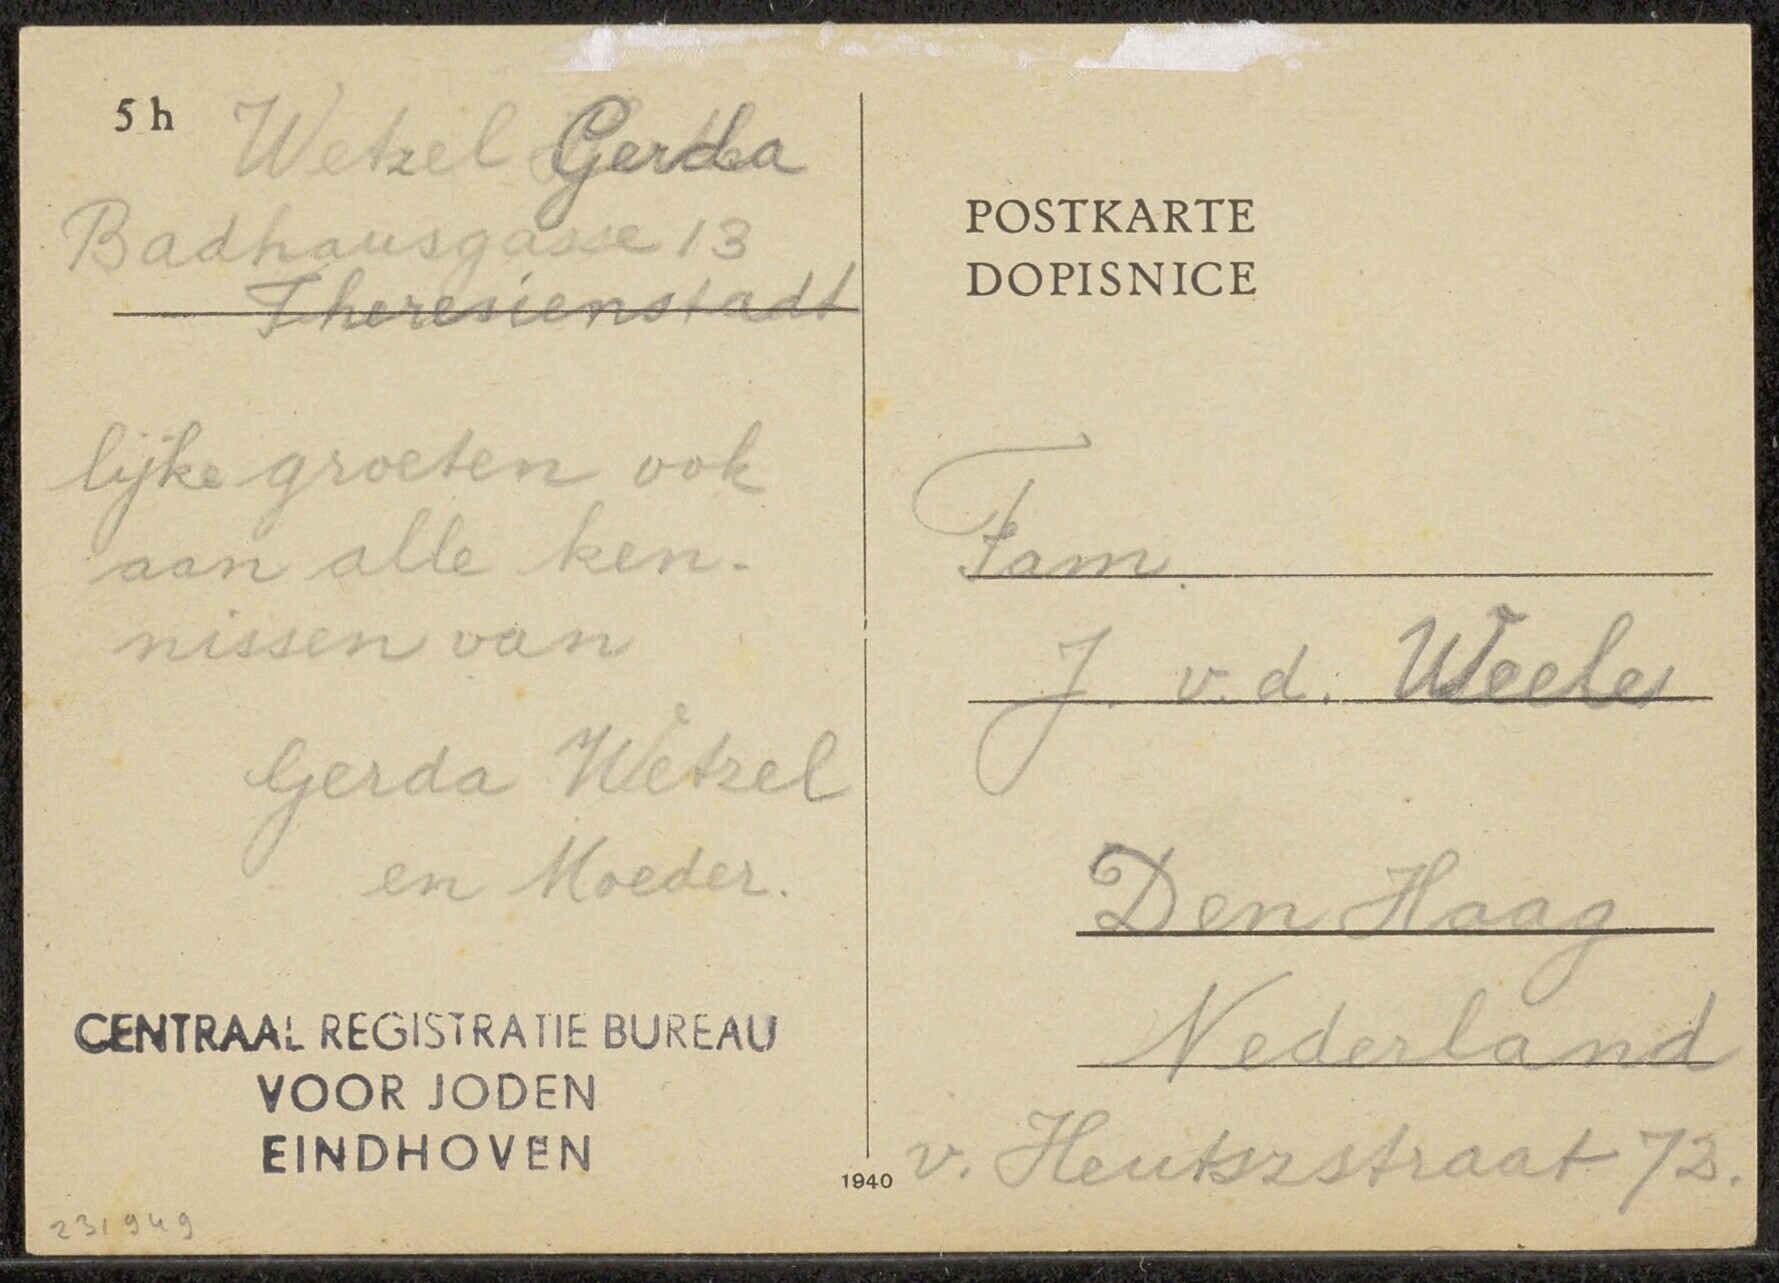 5 h
Wetzel Gerda
Badhausgasse 13
Theresienstadt
lijke groeten ook
aan alle ken-
nissen van
Gerda Wetzel
en Moeder.
CENTRAAL REGISTRATIE BUREAU
VOOR JODEN
EINDHOVEN
231949
1940
POSTKARTE
DOPISNICE
Fam.
J. v. d. Weele
Den Haag
Nederland
v. Heutszstraat 72.